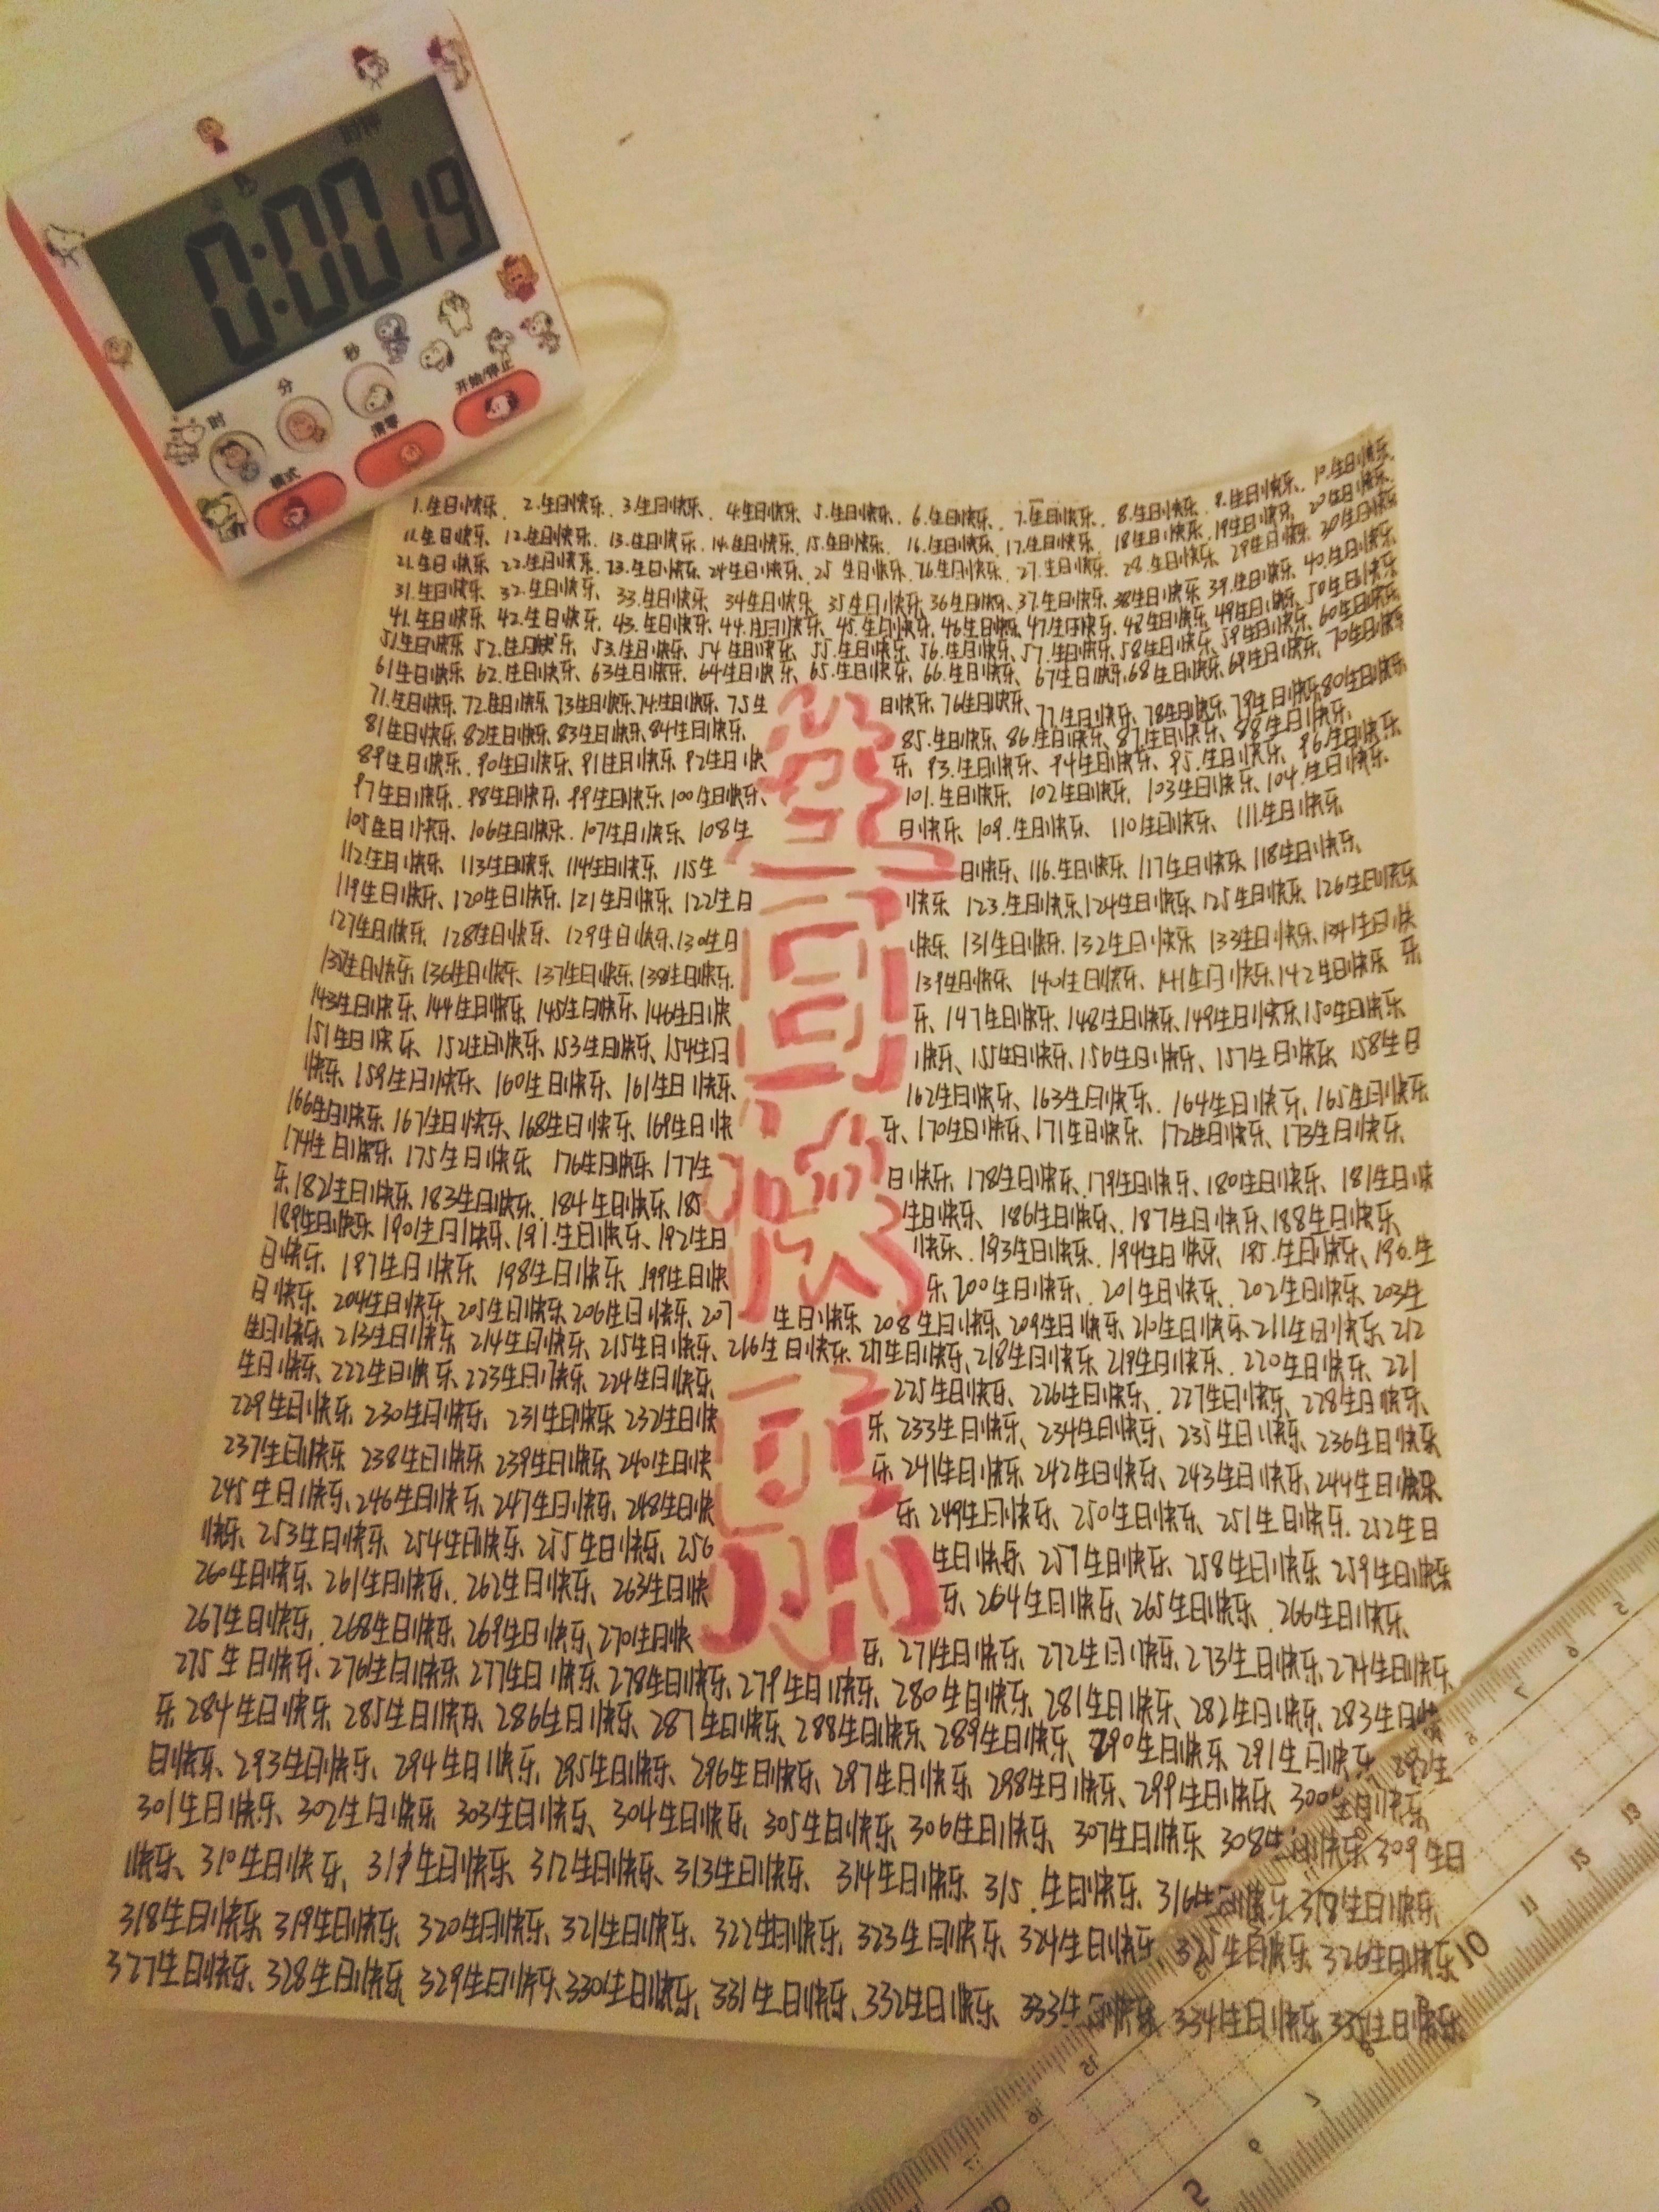 时钟
0:00 19
时 分 秒
模式 清零 开始/停止
1.生日快乐、2.生日快乐、3.生日快乐、4.生日快乐、5.生日快乐、6.生日快乐、7.生日快乐、8.生日快乐、9.生日快乐、10.生日快乐、
11.生日快乐、12.生日快乐、13.生日快乐、14.生日快乐、15.生日快乐、16.生日快乐、17.生日快乐、18生日快乐、19生日快乐、20生日快乐、
21.生日快乐 22.生日快乐、23.生日快乐、24生日快乐、25生日快乐、26.生日快乐、27.生日快乐、28.生日快乐、29生日快乐、30生日快乐
31.生日快乐、32.生日快乐、33.生日快乐、34生日快乐、35生日快乐、36生日快乐、37.生日快乐、38生日快乐、39.生日快乐、40.生日快乐
41.生日快乐、42.生日快乐、43.生日快乐、44.生日快乐、45.生日快乐、46生日快乐、47生日快乐、48生日快乐、49生日快乐、50生日快乐
51生日快乐、52.生日快乐、53.生日快乐、54生日快乐、55.生日快乐、56.生日快乐、57.生日快乐、58生日快乐、59生日快乐、60生日快乐
61生日快乐、62.生日快乐、63生日快乐、64生日快乐、65.生日快乐、66.生日快乐、67生日快乐、68生日快乐、69生日快乐、70生日快乐
71.生日快乐、72.生日快乐、73生日快乐、74.生日快乐、75生日快乐、76生日快乐、77.生日快乐、78生日快乐、79生日快乐、80生日快乐
81生日快乐、82生日快乐、83生日快乐、84生日快乐、85.生日快乐、86.生日快乐、87生日快乐、88生日快乐、
89生日快乐、90生日快乐、91生日快乐、92生日快乐、93.生日快乐、94生日快乐、95.生日快乐、96.生日快乐
97生日快乐、98生日快乐、99生日快乐、100生日快乐、101.生日快乐、102生日快乐、103生日快乐、104.生日快乐
105生日快乐、106生日快乐、107生日快乐 108生日快乐、109.生日快乐、110生日快乐、111.生日快乐
112生日快乐 113生日快乐、114生日快乐、115生日快乐、116.生日快乐、117生日快乐 118生日快乐、
119生日快乐、120生日快乐、121生日快乐、122生日快乐 123.生日快乐、124生日快乐、125生日快乐、126生日快乐
127生日快乐、128生日快乐、129生日快乐、130生日快乐、131生日快乐、132生日快乐 133生日快乐、134生日快乐
135生日快乐、136生日快乐、137生日快乐、138生日快乐、139生日快乐、140生日快乐、141生日快乐、142生日快乐
143生日快乐、144生日快乐、145生日快乐、146生日快乐、147生日快乐、148生日快乐、149生日快乐、150生日快乐
151生日快乐、152生日快乐、153生日快乐、154生日快乐、155生日快乐、156生日快乐、157生日快乐 158生日
快乐、159生日快乐、160生日快乐、161生日快乐、162生日快乐、163生日快乐、164生日快乐、165生日快乐
166生日快乐、167生日快乐、168生日快乐、169生日快乐、170生日快乐、171生日快乐、172生日快乐、173生日快乐
174生日快乐、175生日快乐 176生日快乐、177生日快乐、178生日快乐、179生日快乐、180生日快乐、181生日快
乐、182生日快乐、183生日快乐、184生日快乐、185生日快乐、186生日快乐、187生日快乐、188生日快乐
189生日快乐 190生日快乐、191.生日快乐、192生日快乐、193生日快乐、194生日快乐 195.生日快乐、196.生
日快乐、187生日快乐、198生日快乐、199生日快乐、200生日快乐、201生日快乐、202生日快乐 203生
日快乐、204生日快乐、205生日快乐、206生日快乐、207生日快乐 208生日快乐、209生日快乐、210生日快乐、211生日快乐、212
生日快乐、213生日快乐、214生日快乐、215生日快乐、216生日快乐、217生日快乐、218生日快乐、219生日快乐、220生日快乐、221
生日快乐、222生日快乐、223生日快乐、224生日快乐、225生日快乐、226生日快乐、227生日快乐、228生日快乐、
229生日快乐、230生日快乐、231生日快乐 232生日快乐 233生日快乐、234生日快乐、235生日快乐、236生日快乐
237生日快乐 238生日快乐 239生日快乐、240生日快乐 241生日快乐 242生日快乐、243生日快乐、244生日快乐
245生日快乐、246生日快乐、247生日快乐、248生日快乐、249生日快乐、250生日快乐、251生日快乐、252生日
快乐、253生日快乐、254生日快乐、255生日快乐、256生日快乐、257生日快乐、258生日快乐 259生日快乐
260生日快乐、261生日快乐、262生日快乐、263生日快乐、264生日快乐、265生日快乐、266生日快乐、
267生日快乐、268生日快乐、269生日快乐、270生日快乐、271生日快乐、272生日快乐、273生日快乐、274生日快乐
275生日快乐、276生日快乐、277生日快乐、278生日快乐、279生日快乐、280生日快乐、281生日快乐、282生日快乐、283生日快
乐、284生日快乐、285生日快乐、286生日快乐、287生日快乐、288生日快乐、289生日快乐、290生日快乐、291生日快乐、292生
日快乐、293生日快乐、294生日快乐、295生日快乐、296生日快乐、297生日快乐、298生日快乐、299生日快乐、300生日快乐
301生日快乐、302生日快乐 303生日快乐、304生日快乐、305生日快乐、306生日快乐、307生日快乐 308生日快乐、309生日
快乐、310生日快乐、311生日快乐、312生日快乐、313生日快乐、314生日快乐、315.生日快乐、316生日快乐、318生日快乐
318生日快乐 319生日快乐、320生日快乐、321生日快乐、322生日快乐、323生日快乐、324生日快乐、325生日快乐 326生日快乐
327生日快乐、328生日快乐、329生日快乐、330生日快乐、331生日快乐、332生日快乐 333生日快乐 334生日快乐 335生日快乐